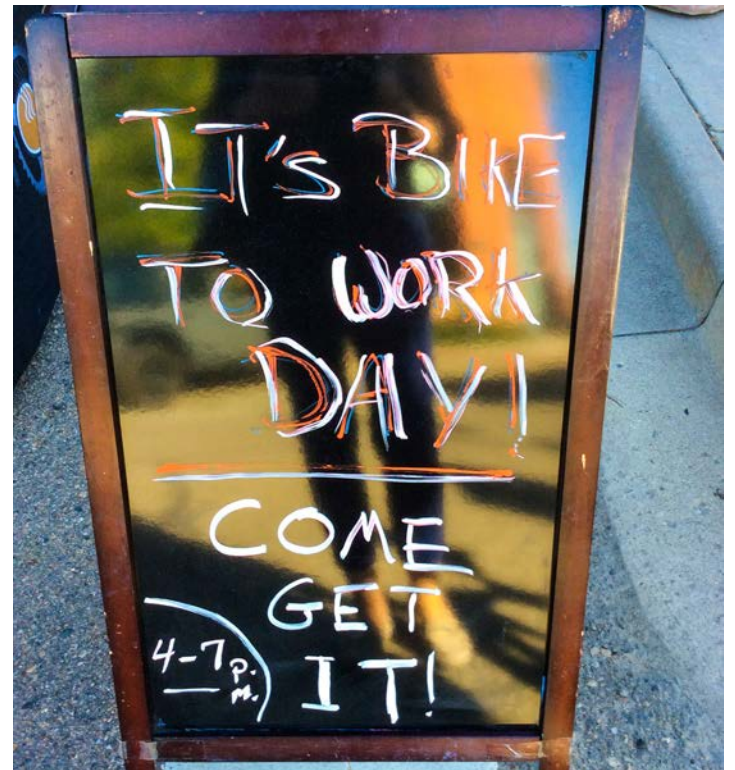 IT'S BIKE
TO WORK
DAY!
COME
GET
IT!
4-7 P.M.